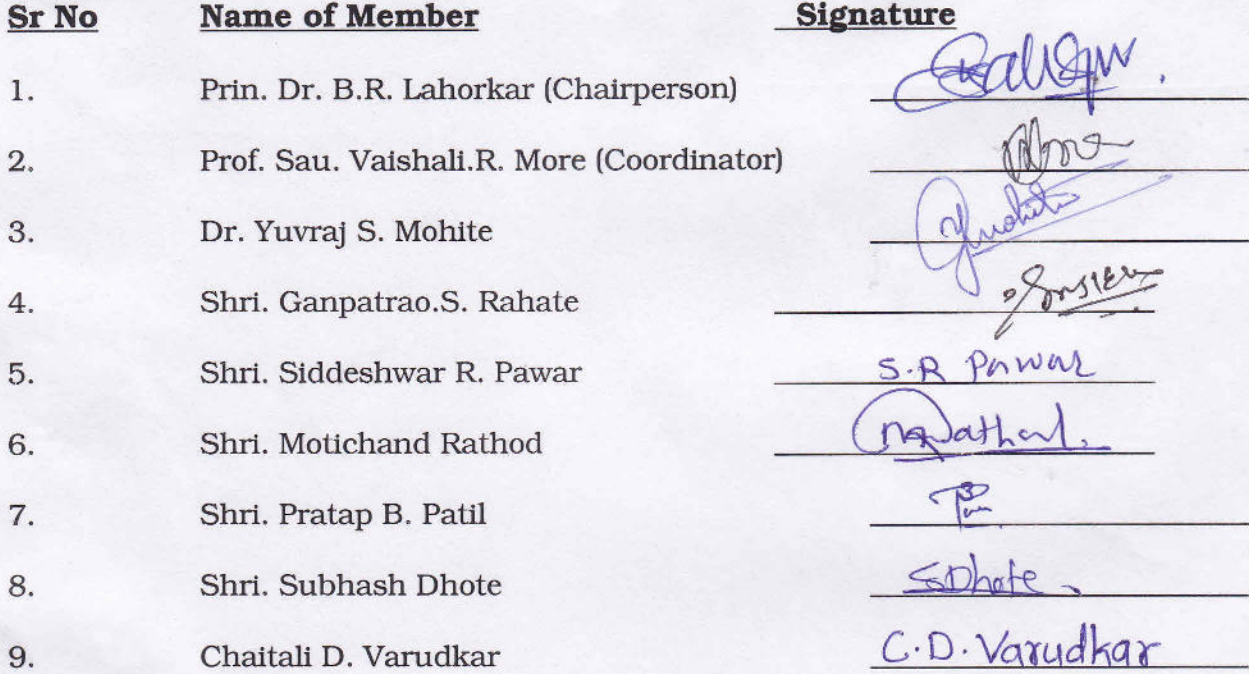 Sr No Name of Member Signature
1. Prin. Dr. B.R. Lahorkar (Chairperson)
2. Prof. Sau. Vaishali.R. More (Coordinator)
3. Dr. Yuvraj S. Mohite
4. Shri. Ganpatrao.S. Rahate
5. Shri. Siddeshwar R. Pawar S.R Pawar
6. Shri. Motichand Rathod
7. Shri. Pratap B. Patil
8. Shri. Subhash Dhote SDhote
9. Chaitali D. Varudkar C.D. Varudkar